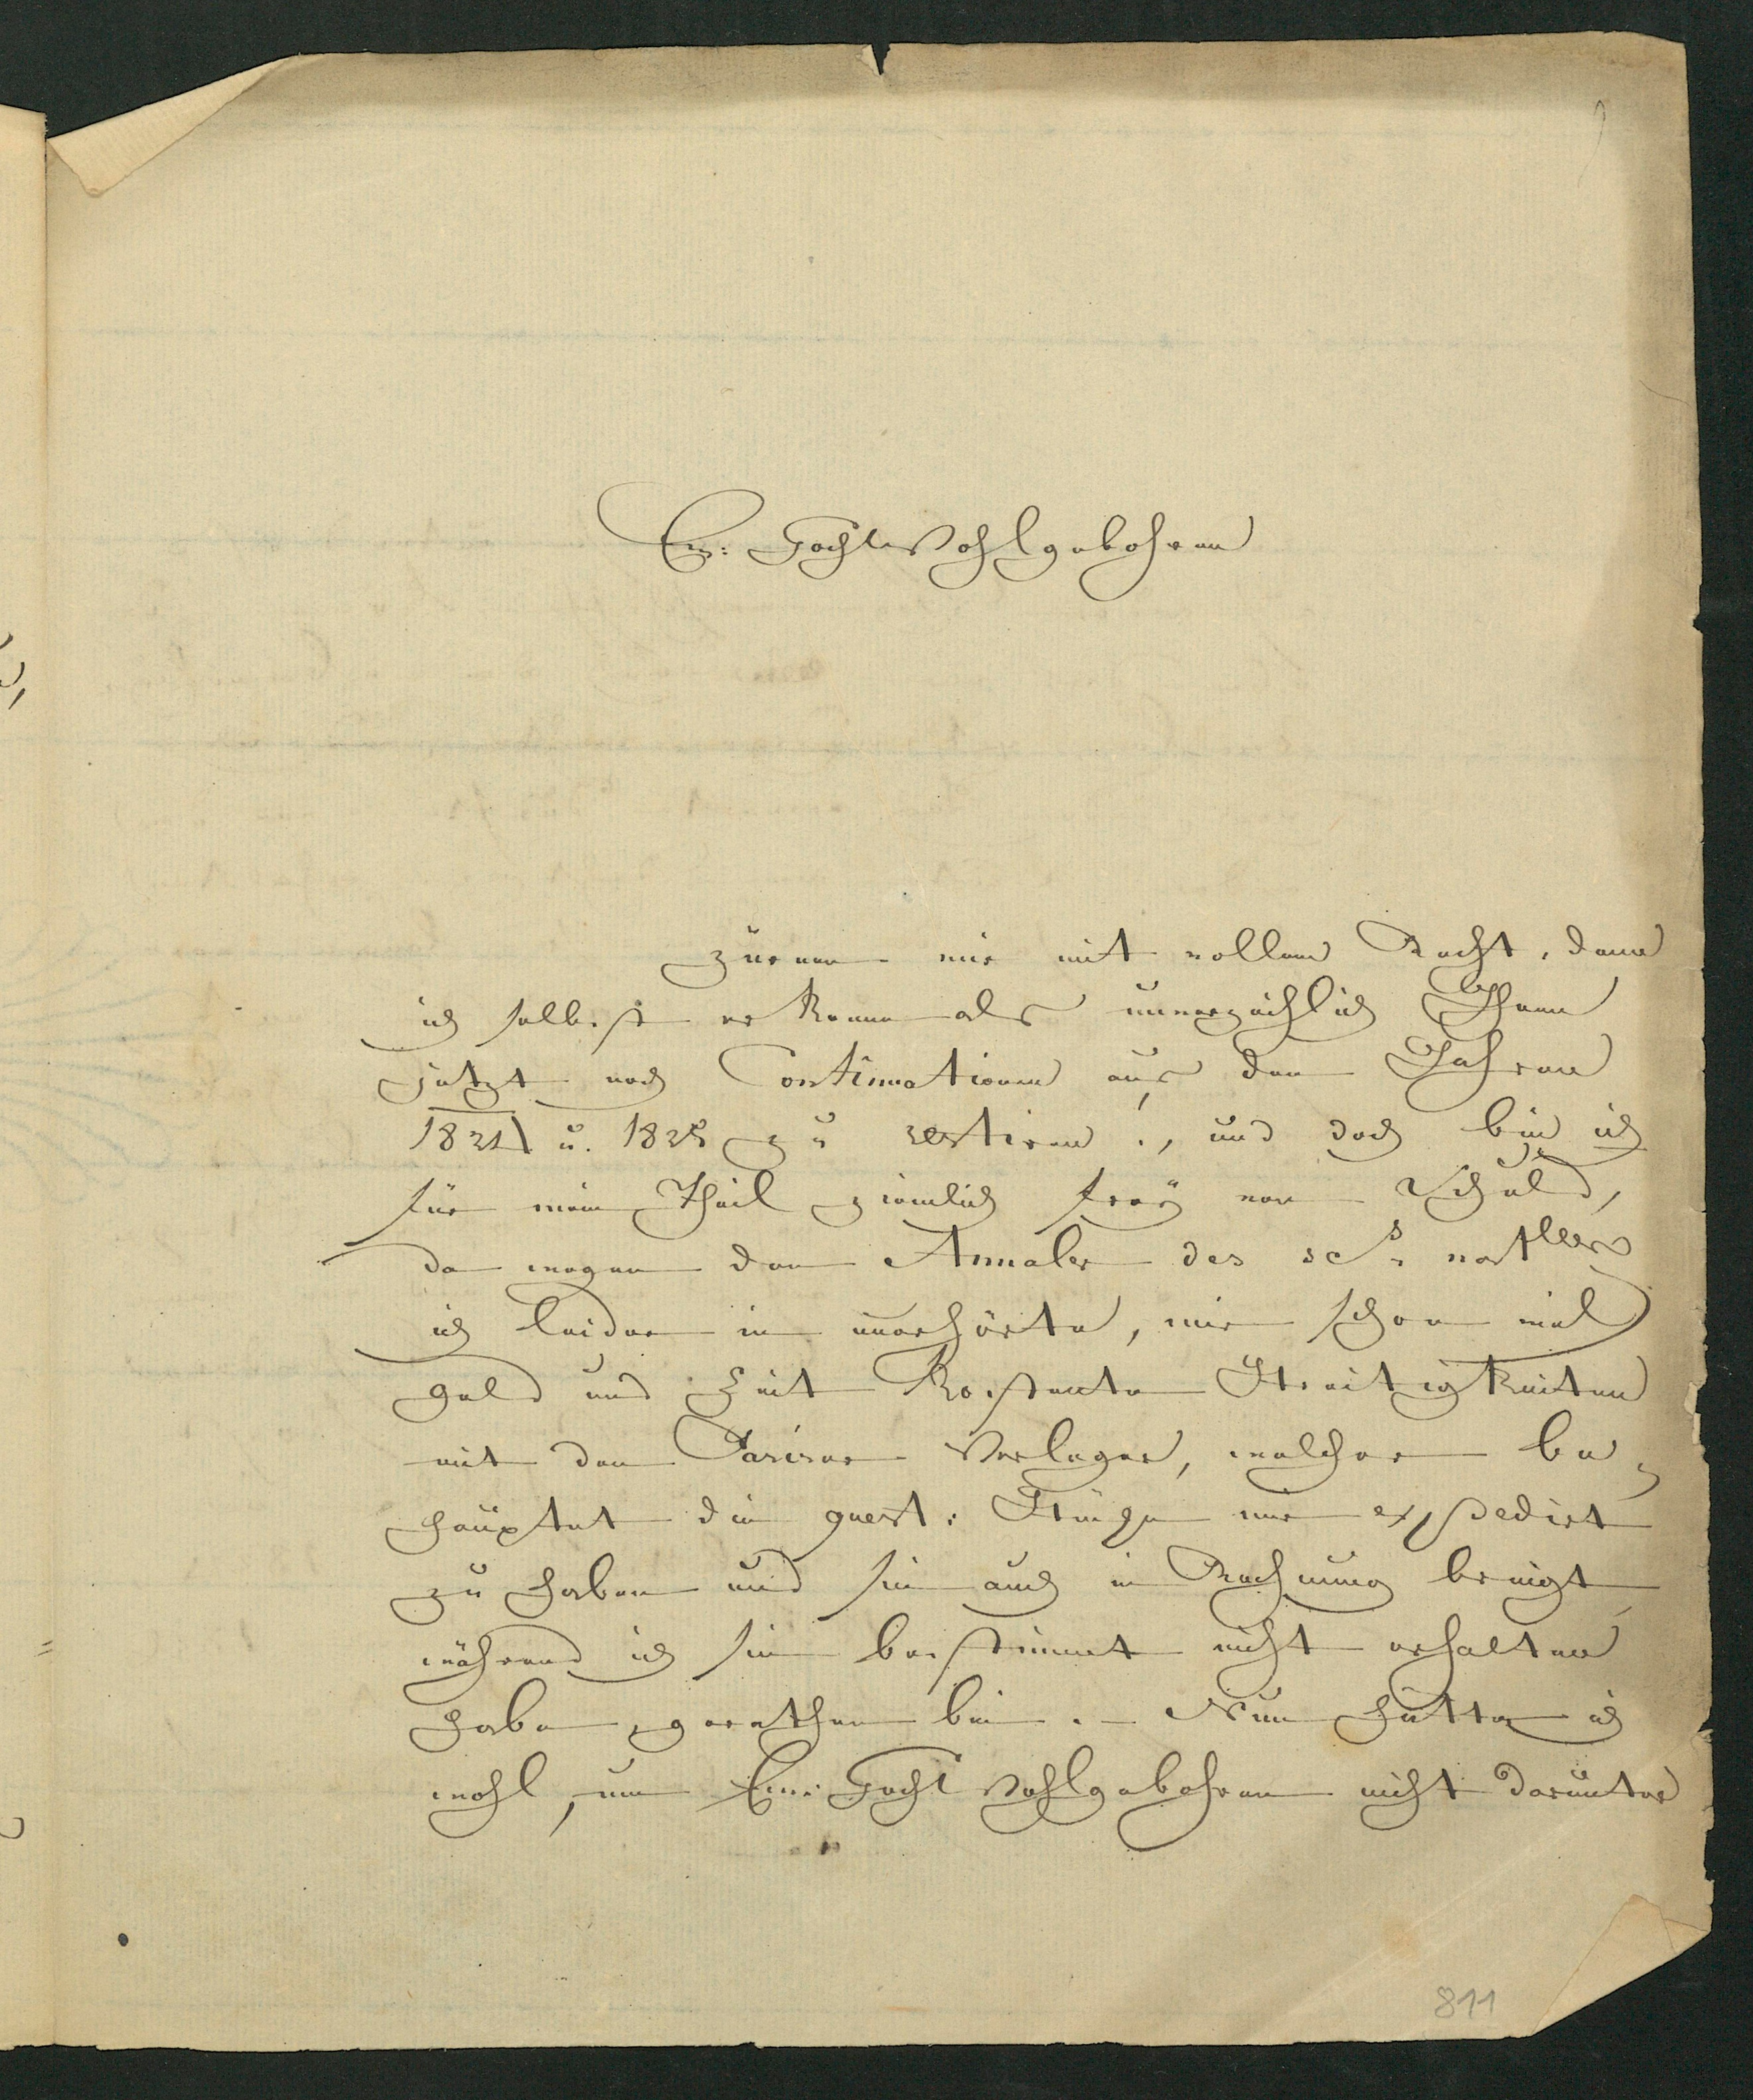 Ew: HochWohlgebohren
zürnen mir mit vollem Recht, denn
ich selbst erkenne als unverzeihlich Ihnen
jetzt noch Continuationen aus den Jahren
1824 u. 1825 zu restiren!, und doch bin ich
für mein Theil ziemlich frey von Schuld,
da wegen den Annales des scs natlles
ich leider in unerhörte, mir schon viel
Geld und Zeit kostente Streitigkeiten
mit dem Pariser Verleger, welcher be-
hauptet die quest: Stücke mir expedirt
zu haben und sie auch in Rechnung bringt,
während ich sie bestimmt nicht erhalten
habe, gerathen bin. – Nun hätte ich
wohl, um Ew: HochWohlgebohren nicht darunter
811